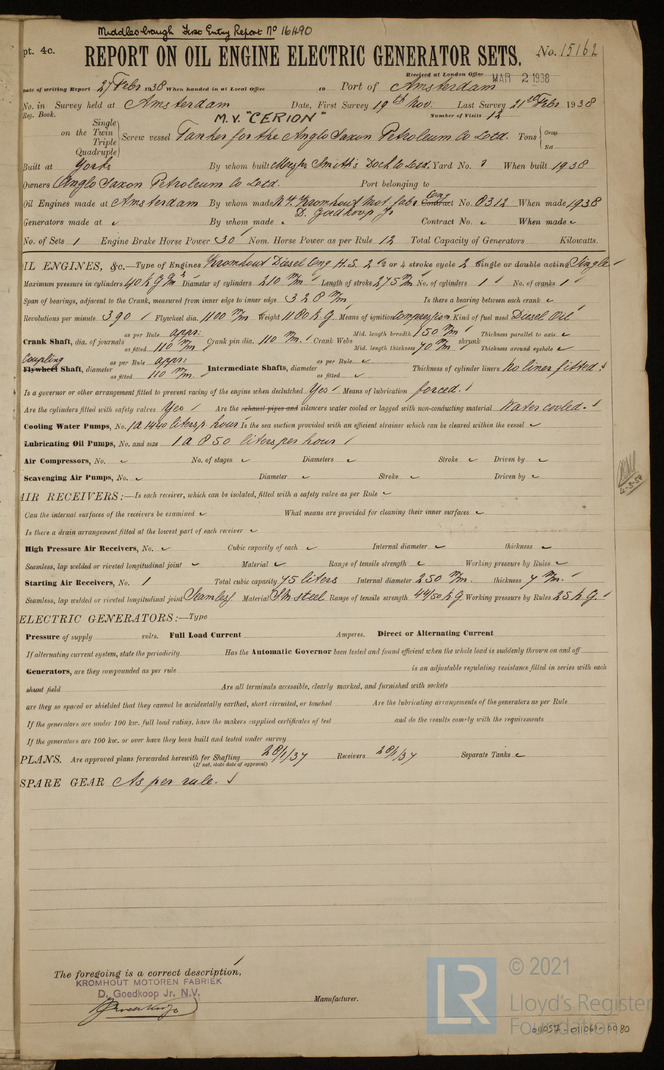 Middlesbrough First Entry Report No 16490
pt. 4c.
REPORT ON OIL ENGINE ELECTRIC GENERATOR SETS.
No. 15162
Received at London Office MAR 2 1938
Date of writing Report 27 Febr 1938 When handed in at Local Office 10 Port of Amsterdam
No. in Survey held at Amsterdam Date, First Survey 19th Nov. Last Survey 21st Febr 1938
Reg. Book. Number of Visits 12
M.V. "CERION"
on the Single Twin Triple Quadruple Screw vessel Tanker for the Anglo Saxon Petroleum Co Ltd. Tons Gross Net
Built at By whom built Yard No. When built 1938
Owners Anglo Saxon Petroleum Co Ltd. Port belonging to
Oil Engines made at Amsterdam By whom made Kromhout Mot. fabr. D. Goedkoop Jr Eng Contract No. 8312 When made 1938
Generators made at By whom made Contract No. When made
No. of Sets 1 Engine Brake Horse Power 30 Nom. Horse Power as per Rule 12 Total Capacity of Generators Kilowatts.
IL ENGINES, &c.—Type of Engines Kromhout Diesel Eng H.S. 2 or 4 stroke cycle 2 Single or double acting Single
Maximum pressure in cylinders 40 kg Diameter of cylinders 210 m/m. Length of stroke 275 m/m No. of cylinders 1 No. of cranks 1
Span of bearings, adjacent to the Crank, measured from inner edge to inner edge. 328 m/m. Is there a bearing between each crank
Revolutions per minute 390 Flywheel dia. 1100 m/m. Weight 1180 kg Means of ignition Compression Kind of fuel used Diesel Oil
Crank Shaft, dia. of journals as per Rule appr. as fitted 110 m/m. Crank pin dia. 110 m/m. Crank Webs Mid. length breadth 150 m/m Mid. length thickness 70 m/m shrunk Thickness parallel to axis Thickness around eyehole
Coupling
Flywheel Shaft, diameter as per Rule appr. as fitted 110 m/m. Intermediate Shafts, diameter as per Rule as fitted Thickness of cylinder liners No liner fitted.
Is a governor or other arrangement fitted to prevent racing of the engine when declutched Yes Means of lubrication forced.
Are the cylinders fitted with safety valves Yes Are the exhaust pipes and silencers water cooled or lagged with non-conducting material Water cooled.
Cooling Water Pumps, No. 1 a 1440 liters p. hour Is the sea suction provided with an efficient strainer which can be cleared within the vessel
Lubricating Oil Pumps, No. and size 1 a 850 liters per hour
Air Compressors, No. No. of stages Diameters Stroke Driven by
Scavenging Air Pumps, No. Diameter Stroke Driven by
AIR RECEIVERS:—Is each receiver, which can be isolated, fitted with a safety valve as per Rule
Can the internal surfaces of the receivers be examined What means are provided for cleaning their inner surfaces
Is there a drain arrangement fitted at the lowest part of each receiver
High Pressure Air Receivers, No. Cubic capacity of each Internal diameter thickness
Seamless, lap welded or riveted longitudinal joint Material Range of tensile strength Working pressure by Rules
Starting Air Receivers, No. 1 Total cubic capacity 75 liters Internal diameter 250 m/m. thickness 7 m/m.
Seamless, lap welded or riveted longitudinal joint Seamless Material S.M. steel Range of tensile strength 44/50 kg Working pressure by Rules 25 kg.
ELECTRIC GENERATORS:—Type
Pressure of supply volts. Full Load Current Amperes. Direct or Alternating Current
If alternating current system, state the periodicity Has the Automatic Governor been tested and found efficient when the whole load is suddenly thrown on and off
Generators, are they compounded as per rule is an adjustable regulating resistance fitted in series with each
shunt field Are all terminals accessible, clearly marked, and furnished with sockets
are they so spaced or shielded that they cannot be accidentally earthed, short circuited, or touched Are the lubricating arrangements of the generators as per Rule
If the generators are under 100 kw. full load rating, have the makers supplied certificates of test and do the results comply with the requirements
If the generators are 100 kw. or over have they been built and tested under survey
PLANS. Are approved plans forwarded herewith for Shafting 28/1/37 Receivers 28/1/37 Separate Tanks
(If not, state date of approval)
SPARE GEAR As per rule.
The foregoing is a correct description,
KROMHOUT MOTOREN FABRIEK
D. Goedkoop Jr. N.V.
Manufacturer.
LR
© 2021
Lloyd's Register
Foundation